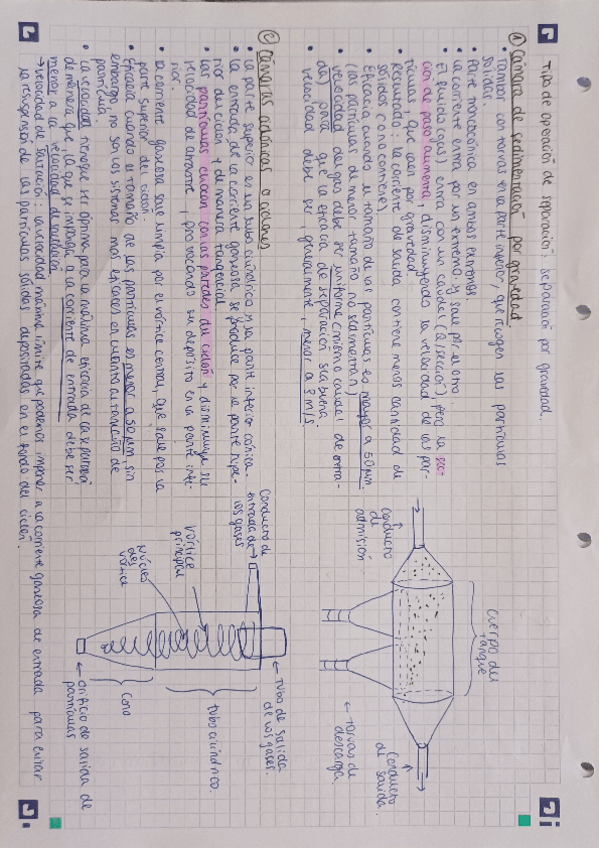 Tipo de operación de separación: separación por gravedad.
① Cámara de sedimentación por gravedad
• Tambor con tolvas en la parte inferior, que recogen las partículas
sólidas.
• Parte troncocónica en ambos extremos.
• La corriente entra por un extremo y sale por el otro.
• El fluido (gas) entra con un caudal (Q/sección), pero la sec-
ción de paso aumenta, disminuyendo la velocidad de las par-
tículas, que caen por gravedad.
• Resultado: la corriente de salida contiene menos cantidad de
sólidos (o no contiene)
• Eficacia cuando el tamaño de las partículas es mayor a 50 μm.
(las partículas de menor tamaño no sedimentan)
• Velocidad del gas debe ser uniforme (mismo caudal de entra-
da) para que la eficacia de separación sea buena.
• Velocidad debe ser, generalmente, menor a 3 m/s.
cuerpo del
tanque
conducto
de
admisión
conducto
de salida.
tolvas de
descarga.
② Cámaras ciclónicas o ciclones
• La parte superior es un tubo cilíndrico y la parte inferior cónica.
• La entrada de la corriente gaseosa se produce por la parte supe-
rior del ciclón y de manera tangencial.
• Las partículas chocan con las paredes del ciclón y disminuyen su
velocidad de arrastre, provocando su depósito en la parte infe-
rior.
• La corriente gaseosa sale limpia por el vórtice central, que sale por la
parte superior del ciclón.
• Eficacia cuando el tamaño de las partículas es menor a 50 μm, sin
embargo no son los sistemas más eficaces en cuanto al tamaño de
partícula.
• La velocidad tiene que ser óptima para la máxima eficacia de la separación
de manera que, la que se imponga a la corriente de entrada debe ser
menor a la velocidad de saltación.
→ velocidad de saltación: la velocidad máxima límite que podemos imponer a la corriente gaseosa de entrada para evitar
la resuspensión de las partículas sólidas depositadas en el fondo del ciclón.
Conducto de
entrada de
los gases
vórtice
principal
Núcleo
del
vórtice
tubo de salida
de los gases.
tubo cilíndrico.
cono
orificio de salida de
partículas